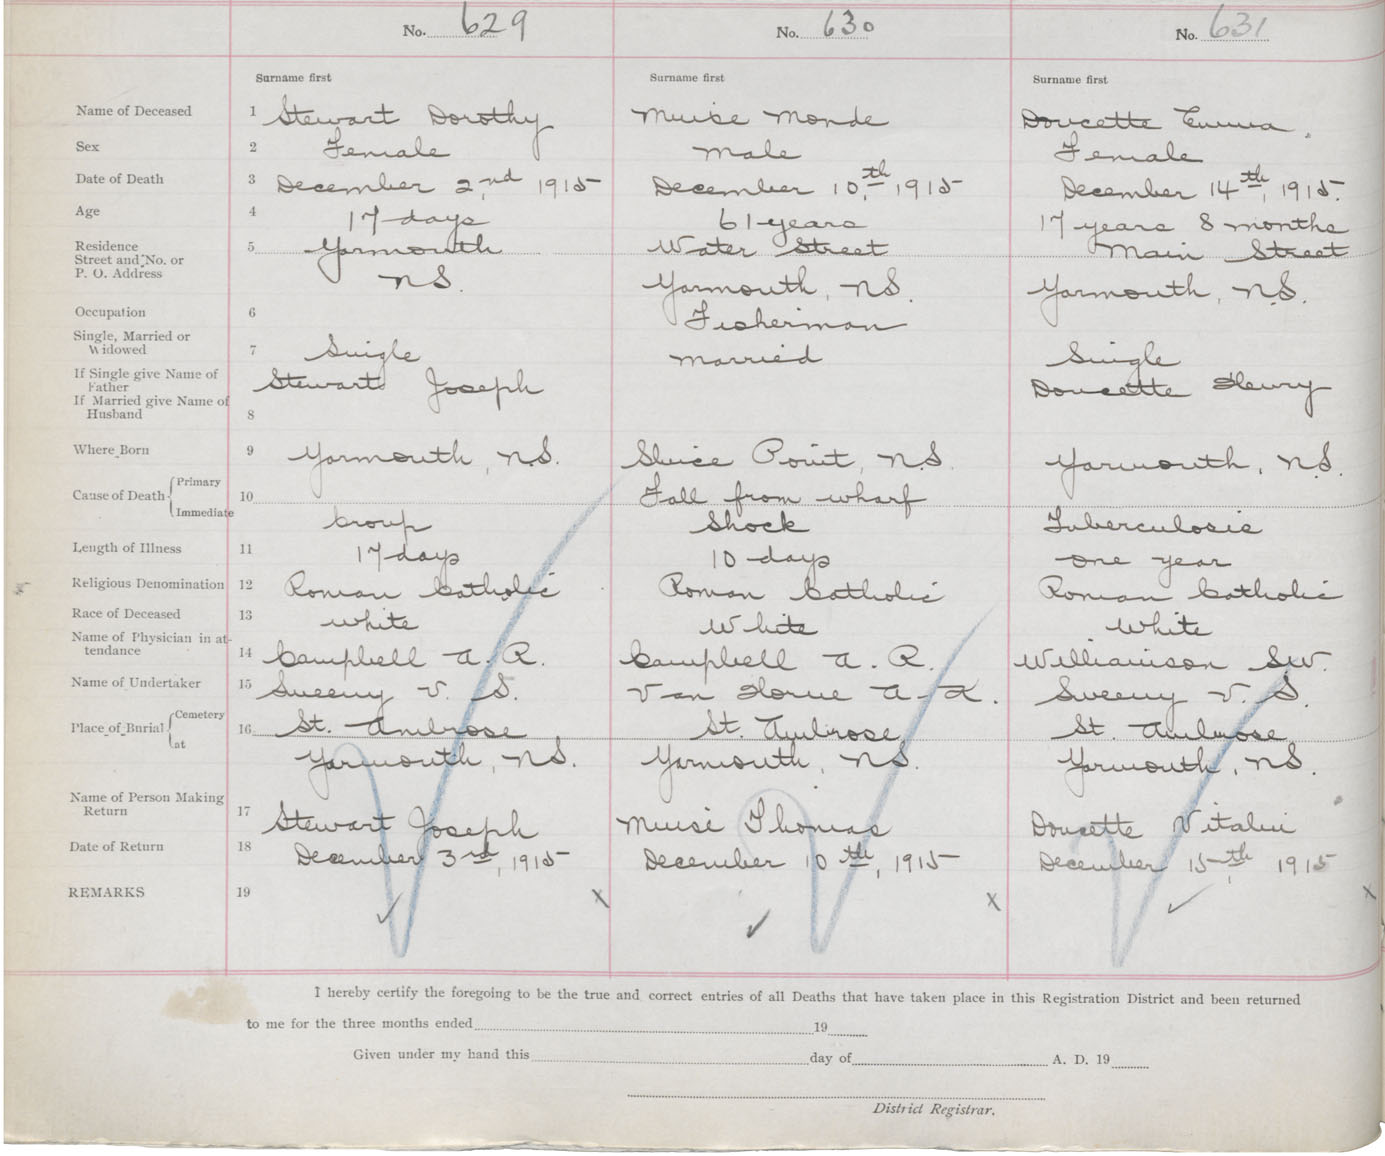 No. 629 No. 630 No. 631
Surname first Surname first Surname first
Name of Deceased 1 Stewart Dorothy Muise Monde Doucette Emma.
Sex 2 Female Male Female
Date of Death 3 December 2nd, 1915 December 10th, 1915 December 14th, 1915.
Age 4 17 days 61 years 17 years 8 months
Residence 5 Yarmouth Water Street Main Street
Street and No. or
P. O. Address N.S. Yarmouth, N.S. Yarmouth, N.S.
Occupation 6 Fisherman
Single, Married or
Widowed 7 Single Married Single
If Single give Name of
Father Stewart Joseph Doucette Henry
If Married give Name of
Husband 8
Where Born 9 Yarmouth, N.S. Sluice Point, N.S. Yarmouth, N.S.
Cause of Death Primary 10 Fall from wharf
Immediate Croup Shock Tuberculosis
Length of Illness 11 17 days 10 days one year
Religious Denomination 12 Roman Catholic Roman Catholic Roman Catholic
Race of Deceased 13 white White White
Name of Physician in at-
tendance 14 Campbell A. R. Campbell A. R. Williamson S.W.
Name of Undertaker 15 Sweeny V. S. Van Horne A. K. Sweeny V. S.
Place of Burial Cemetery 16 St. Ambrose St. Ambrose St. Ambrose
at Yarmouth, N.S. Yarmouth, N.S. Yarmouth, N.S.
Name of Person Making
Return 17 Stewart Joseph Muise Thomas Doucette Vitalin
Date of Return 18 December 3rd, 1915 December 10th, 1915 December 15th, 1915
REMARKS 19 x x x
I hereby certify the foregoing to be the true and correct entries of all Deaths that have taken place in this Registration District and been returned
to me for the three months ended 19
Given under my hand this day of A. D. 19
District Registrar.